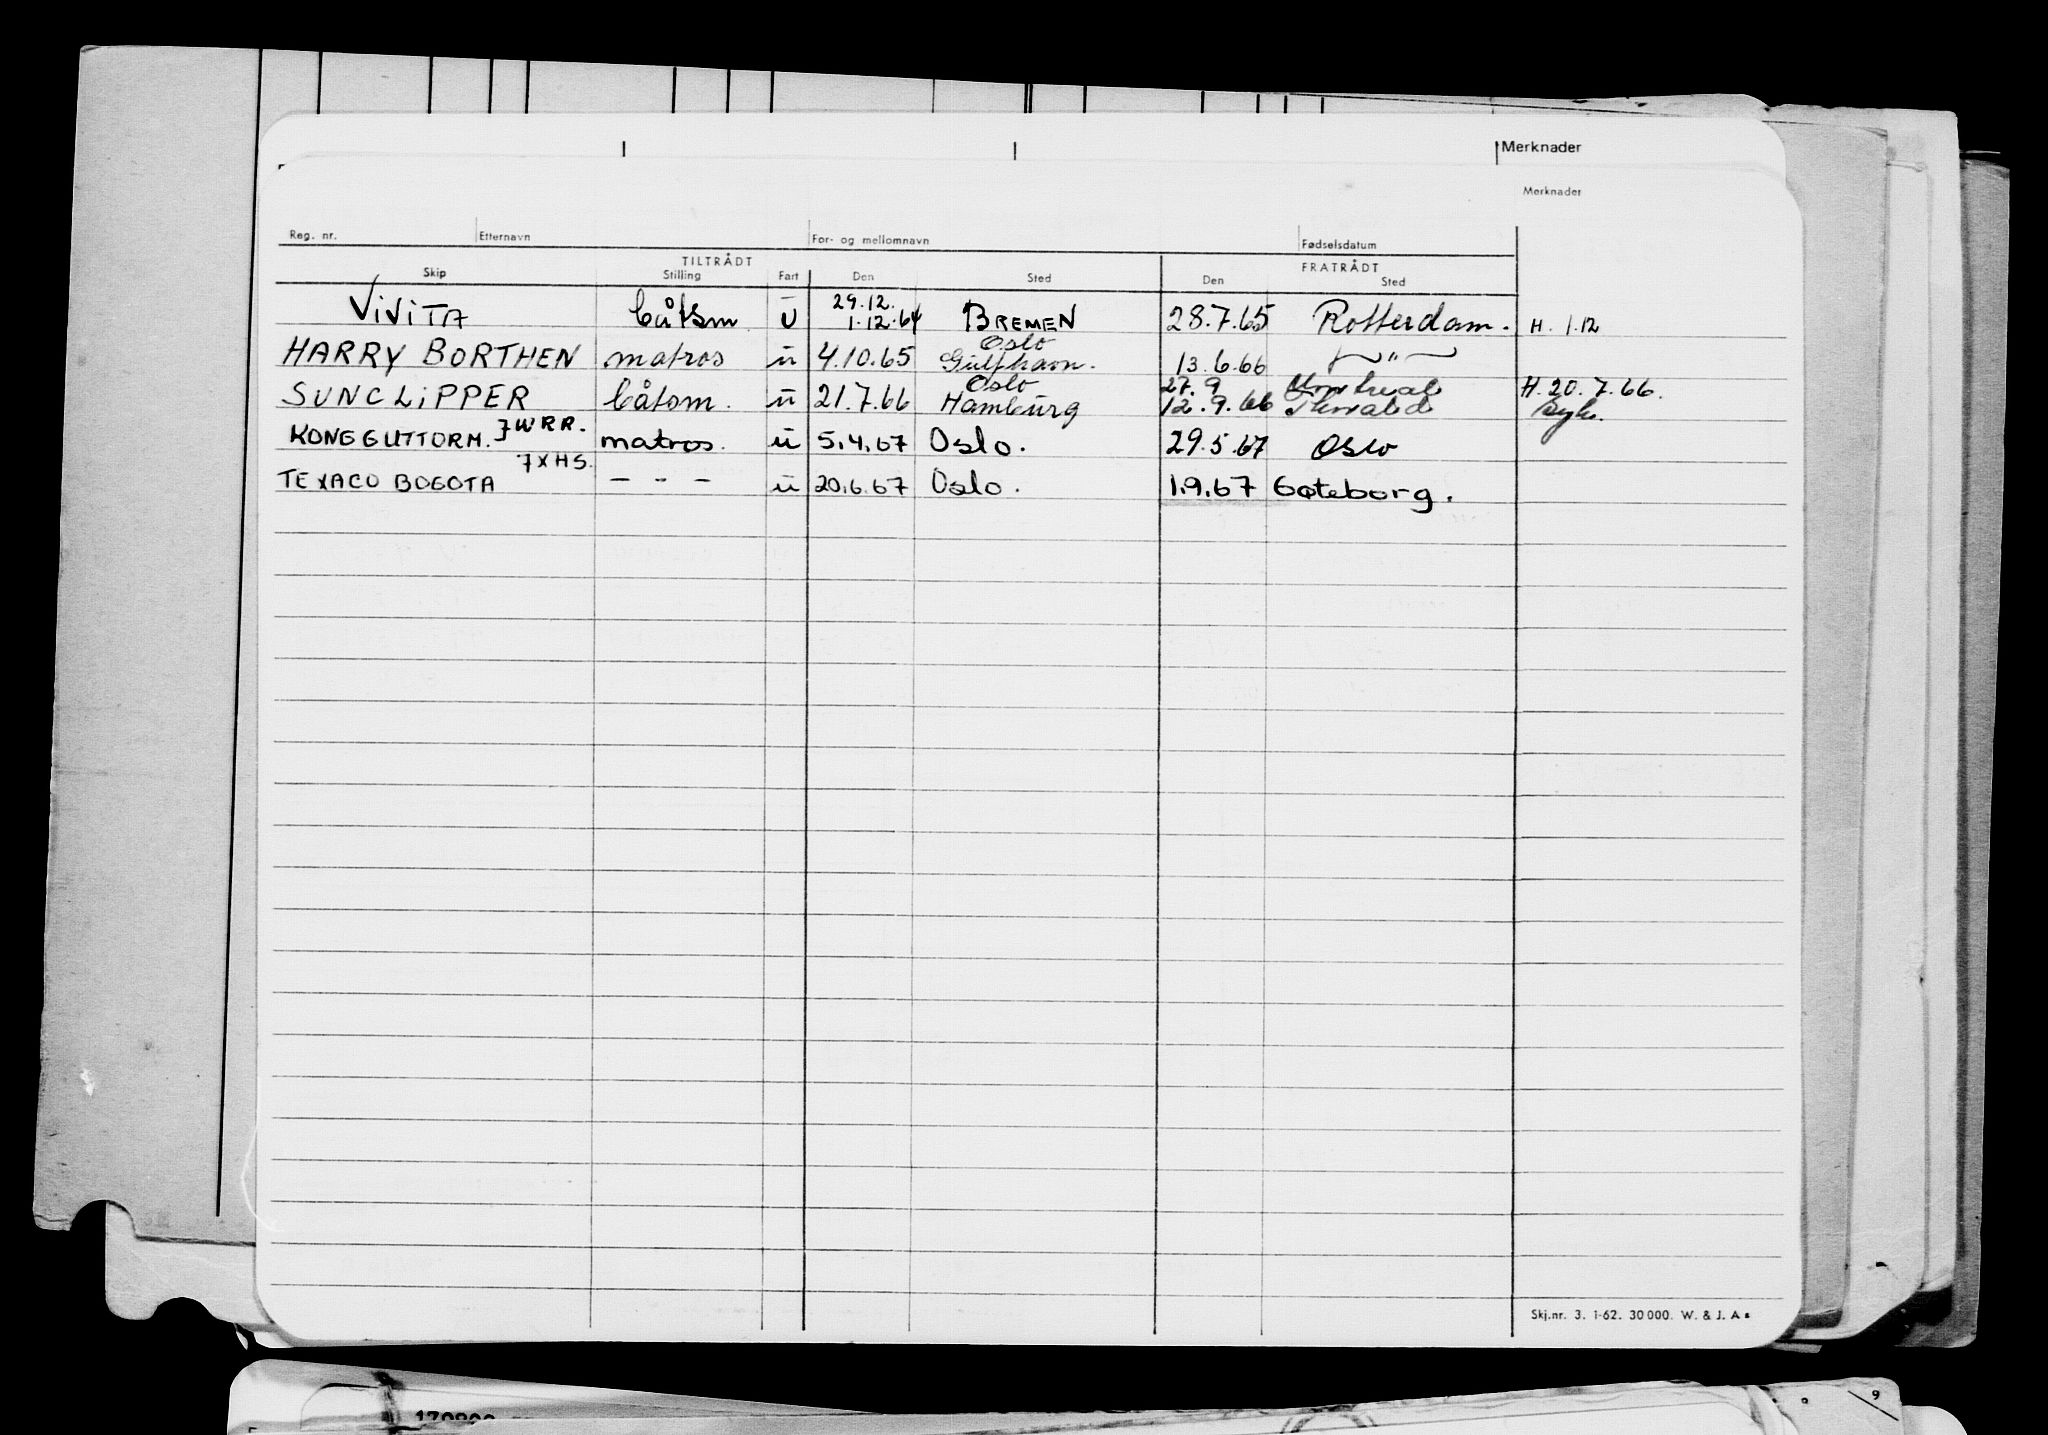 Merknader
Merknader
Reg. nr. Etternavn For- og mellomnavn Fødselsdatum
TILTRÅDT FRATRÅDT
Skip Stilling Fart Den Sted Den Sted
29.12.
ViViTA båtsm u 1.12.64 BREMEN 28.7.65 Rotterdam. H. 1.12
Oslo
HARRY BORTHEN matros u 4.10.65 Gulfhavn. 13.6.66 〃
Oslo 27.9 Montreal H. 20.7.66.
SUNCLiPPER båtsm. u 21.7.66 Hamburg 12.9.66 syk.
JWRR.
KONG GUTTORM. matros. u 5.4.67 Oslo. 29.5.67 Oslo
JXHS.
TEXACO BOGOTA - " - u 20.6.67 Oslo. 1.9.67 Gøteborg.
Skj.nr. 3. 1-62. 30 000. W. & J. A s
9